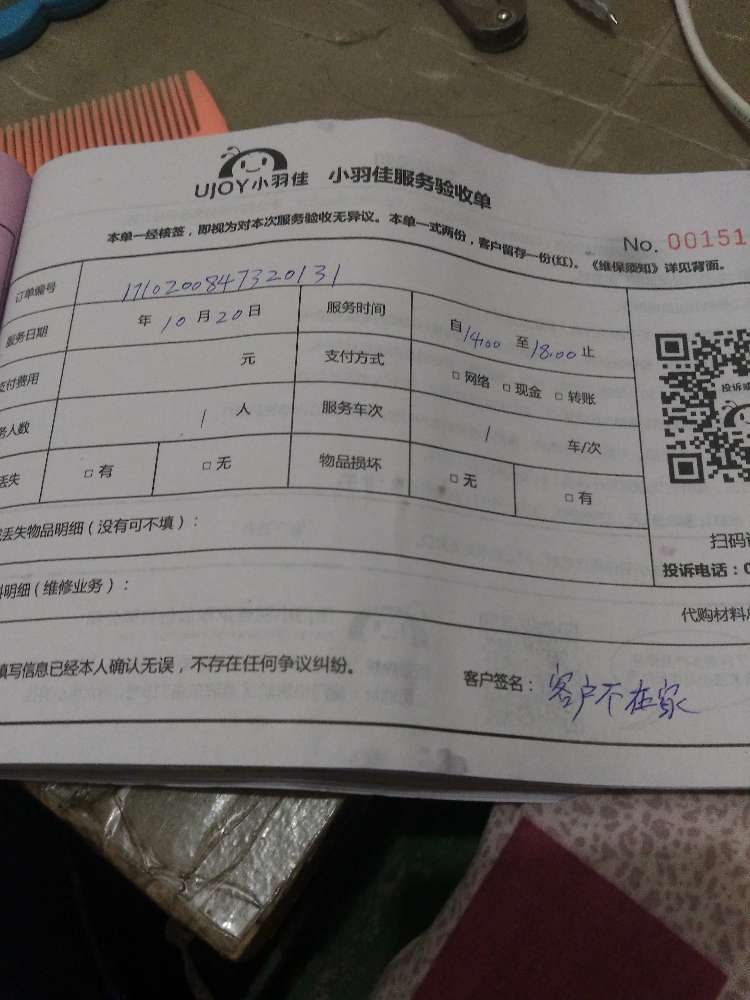 UJOY小羽佳 小羽佳服务验收单
本单一经核签，即视为对本次服务验收无异议。本单一式两份，客户留存一份(红)。《维保须知》详见背面。
No. 00151
订单编号 1710200847320131
服务日期 年 10 月 20 日 服务时间 自 14:00 至 18:00 止
支付费用 元 支付方式 □ 网络 □ 现金 □ 转账
务人数 1 人 服务车次 1 车/次
丢失 □ 有 □ 无 物品损坏 □ 无 □ 有
丢失物品明细（没有可不填）：
扫码
投诉电话：0
料明细（维修业务）：
代购材料
填写信息已经本人确认无误，不存在任何争议纠纷。
客户签名：客户不在家